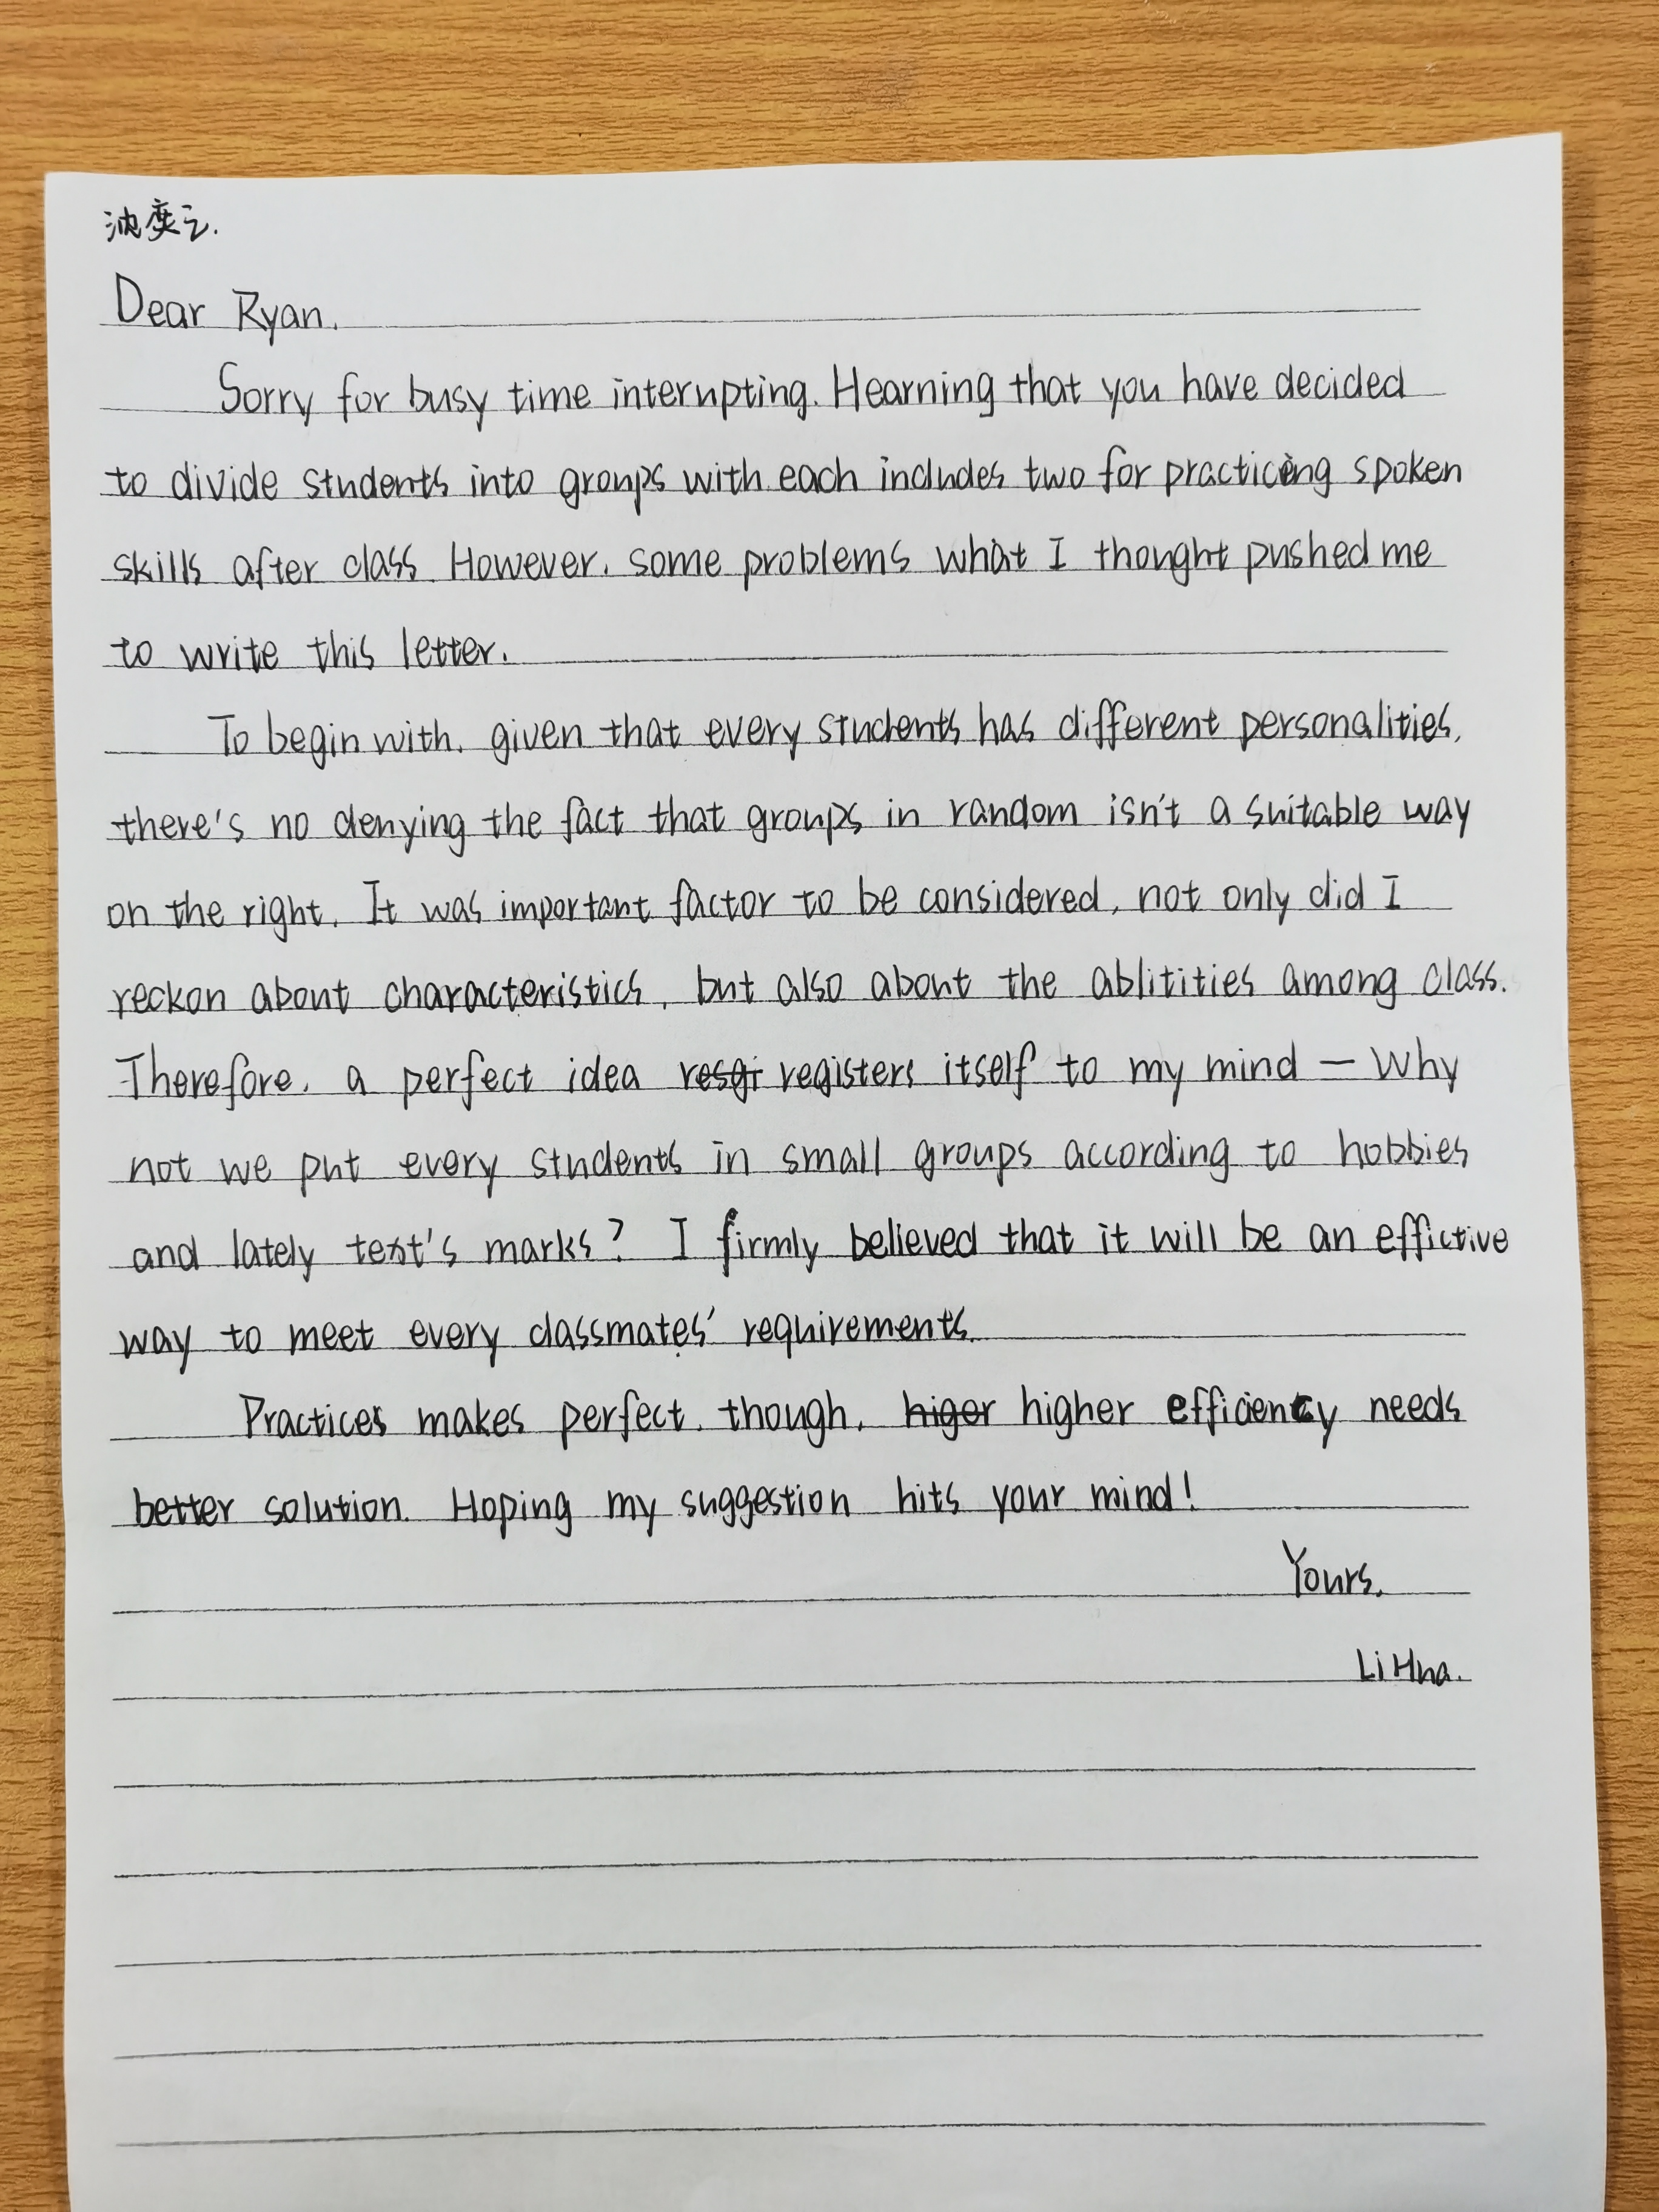 Dear Ryan.
Sorry for busy time interupting. Hearning that you have decided
to divide students into groups with each includes two for practicing spoken
skills after class. However, some problems what I thought pushed me
to write this letter.
To begin with, given that every students has different personalities,
there's no denying the fact that groups in random isn't a suitable way
on the right. It was important factor to be considered, not only did I
reckon about characteristics, but also about the ablitities among class.
Therefore, a perfect idea registers itself to my mind — Why
not we put every students in small groups according to hobbies
and lately text's marks? I firmly believed that it will be an effictive
way to meet every classmates' requirements.
Practices makes perfect, though, higher efficiency needs
better solution. Hoping my suggestion hits your mind!
Yours,
Li Hua.